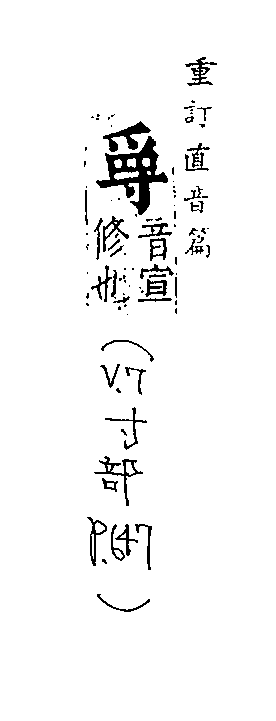 重訂直音篇
音宣
修也
(V.7
寸
部
P.647
)